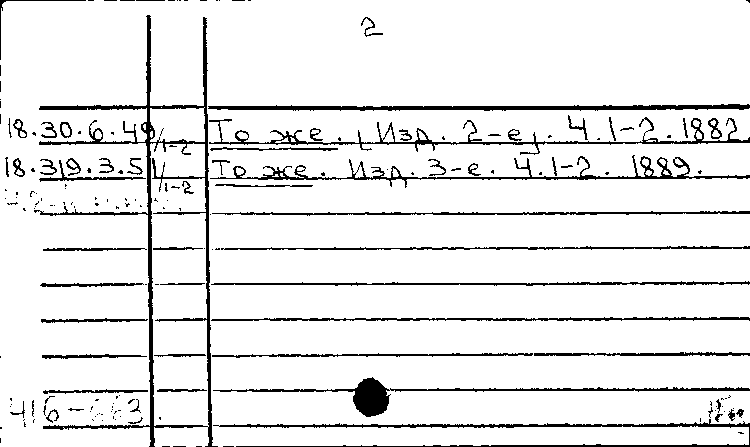 2
18.30.6.49/1-2 То же. [Изд. 2-е]. Ч.1-2. 1882
18.319.3.51/1-2 То же. Изд. 3-е. Ч.1-2. 1889.
Ч.2-й
416-663.